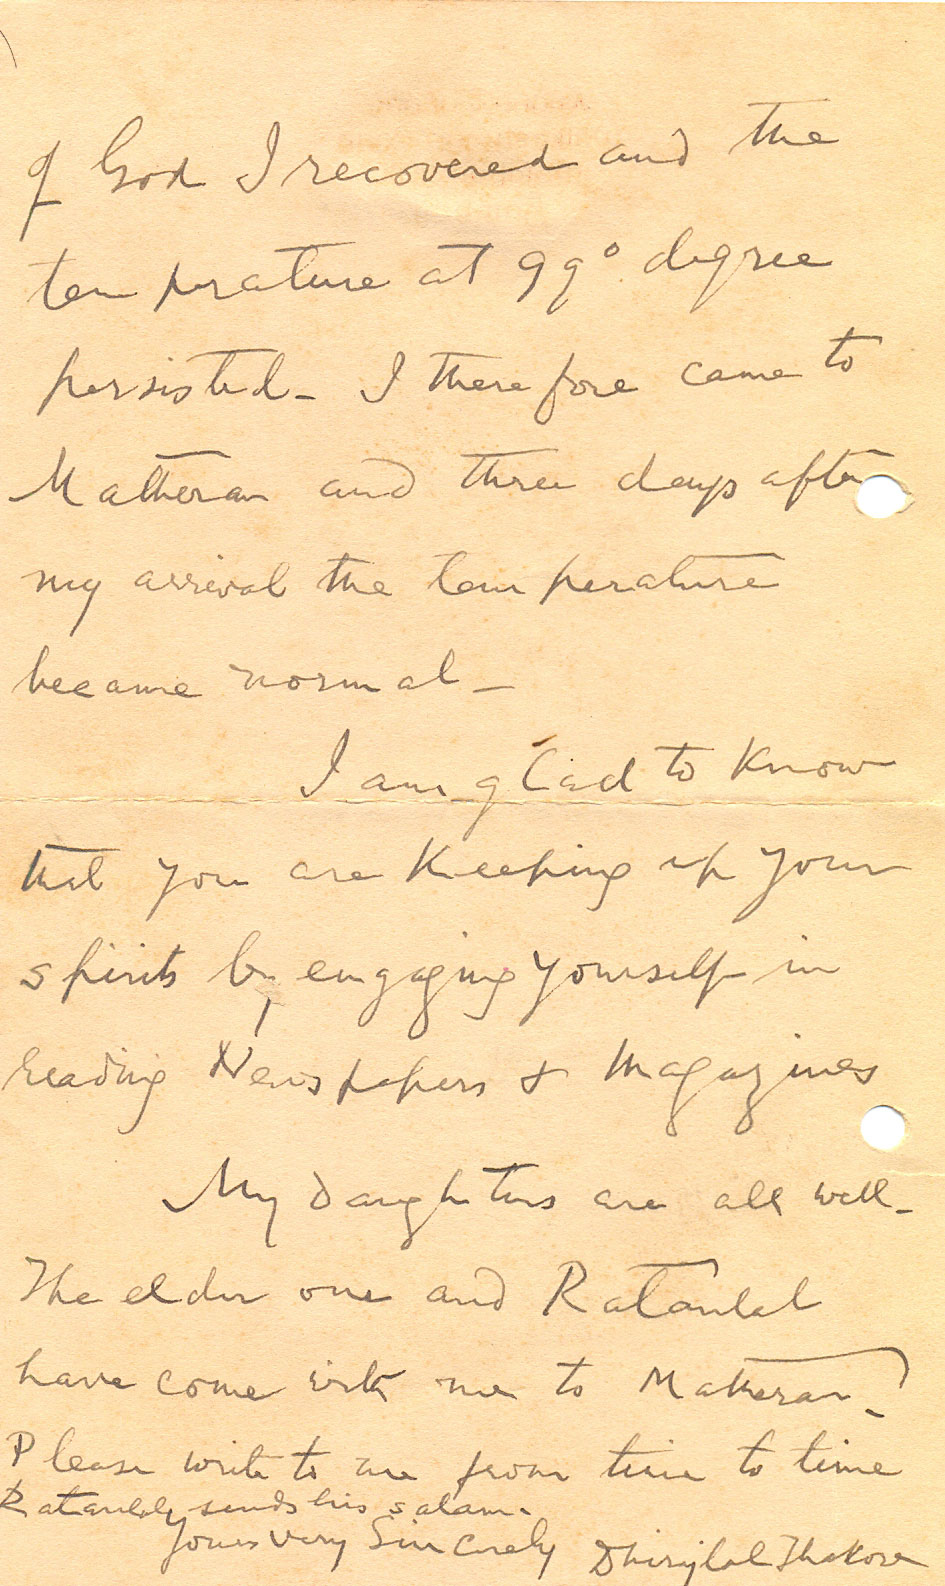 of God I recovered and the
temperature at 99° degree
persisted - I therefore came to
Matheran and three days after
my arrival the temperature
became normal -
I am glad to know
that you are keeping up your
spirits by engaging yourself in
reading Newspapers & Magazines
My daughters are all well -
The elder one and Ratanlal
have come with me to Matheran -
Please write to me from time to time
Ratanlal sends his salam -
Yours very Sincerely Dhirajlal Thakore